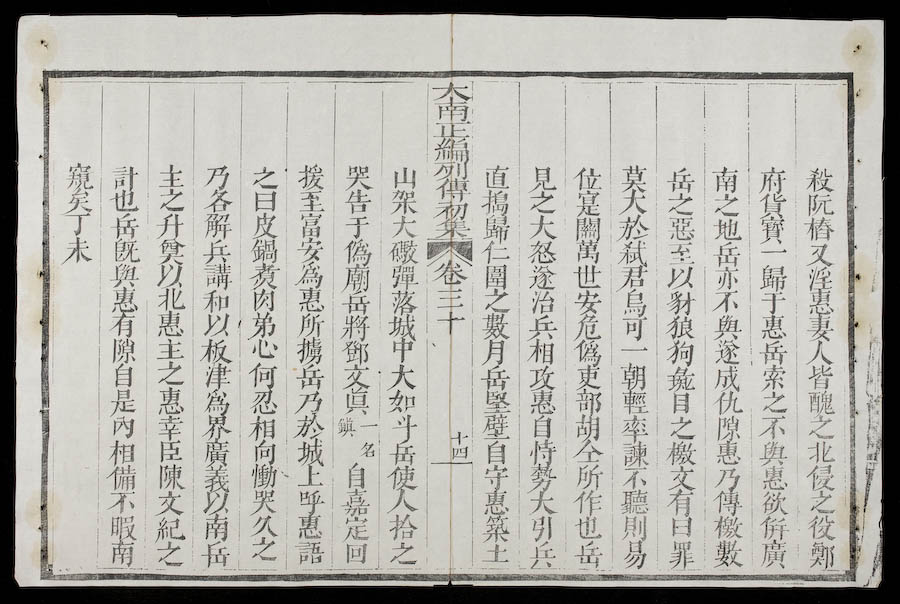 殺阮椿又淫惠妻人皆醜之北侵之役鄭
府貨寶一歸于惠岳索之不與惠欲併廣
南之地岳亦不與遂成仇隙惠乃傳檄數
岳之惡至以豺狼狗彘目之檄文有曰罪
莫大於弒君烏可一朝輕率諫不聽則易
位寔關萬世安危僞吏部胡仝所作也岳
見之大怒遂治兵相攻惠自恃勢大引兵
直搗歸仁圍之數月岳堅壁自守惠築土
大南正編列傳初集 卷三十 十四
山架大礮彈落城中大如斗岳使人拾之
哭告于僞廟岳將鄧文眞一名鎮自嘉定回
援至富安爲惠所擄岳乃於城上呼惠語
之曰皮鍋煑肉弟心何忍相向慟哭久之
乃各解兵講和以板津爲界廣義以南岳
主之升奠以北惠主之惠幸臣陳文紀之
計也岳旣與惠有隙自是內相備不暇南
窺矣丁未